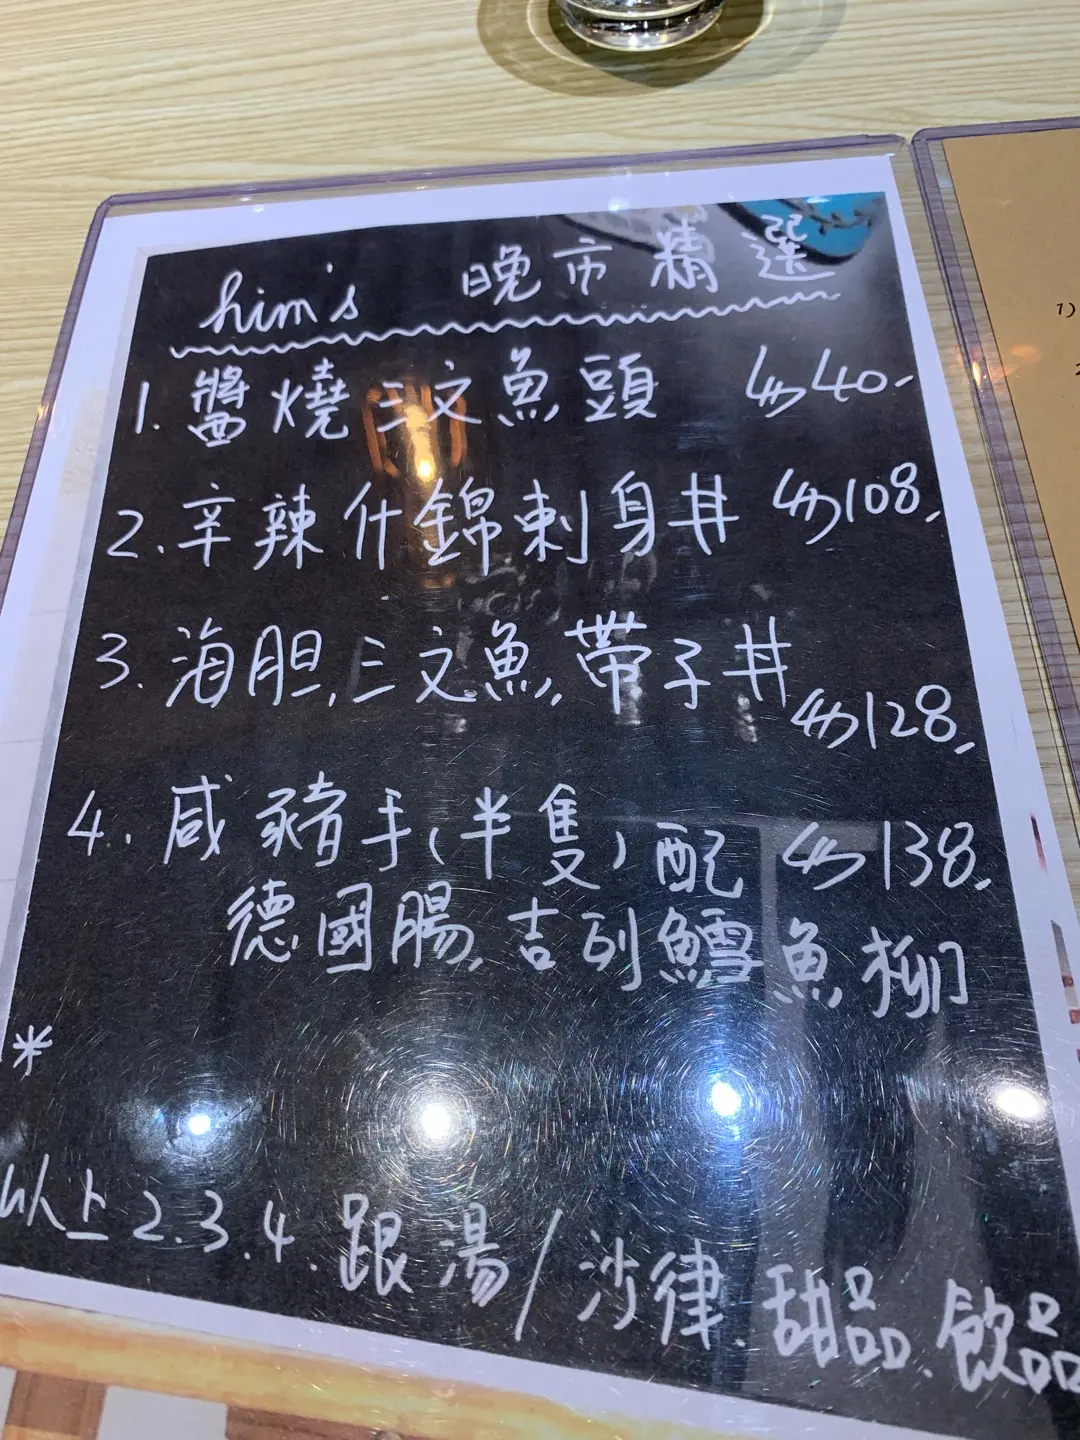 him's 晚市精選
1. 醬燒三文魚頭 $40-
2. 辛辣什錦刺身丼 $108,
3. 海胆,三文魚,帶子丼 $128,
4. 咸豬手(半隻)配 $138,
德國腸,吉列鱈魚柳
*
以上2.3.4.跟湯/沙律.甜品.飲品
1)
2